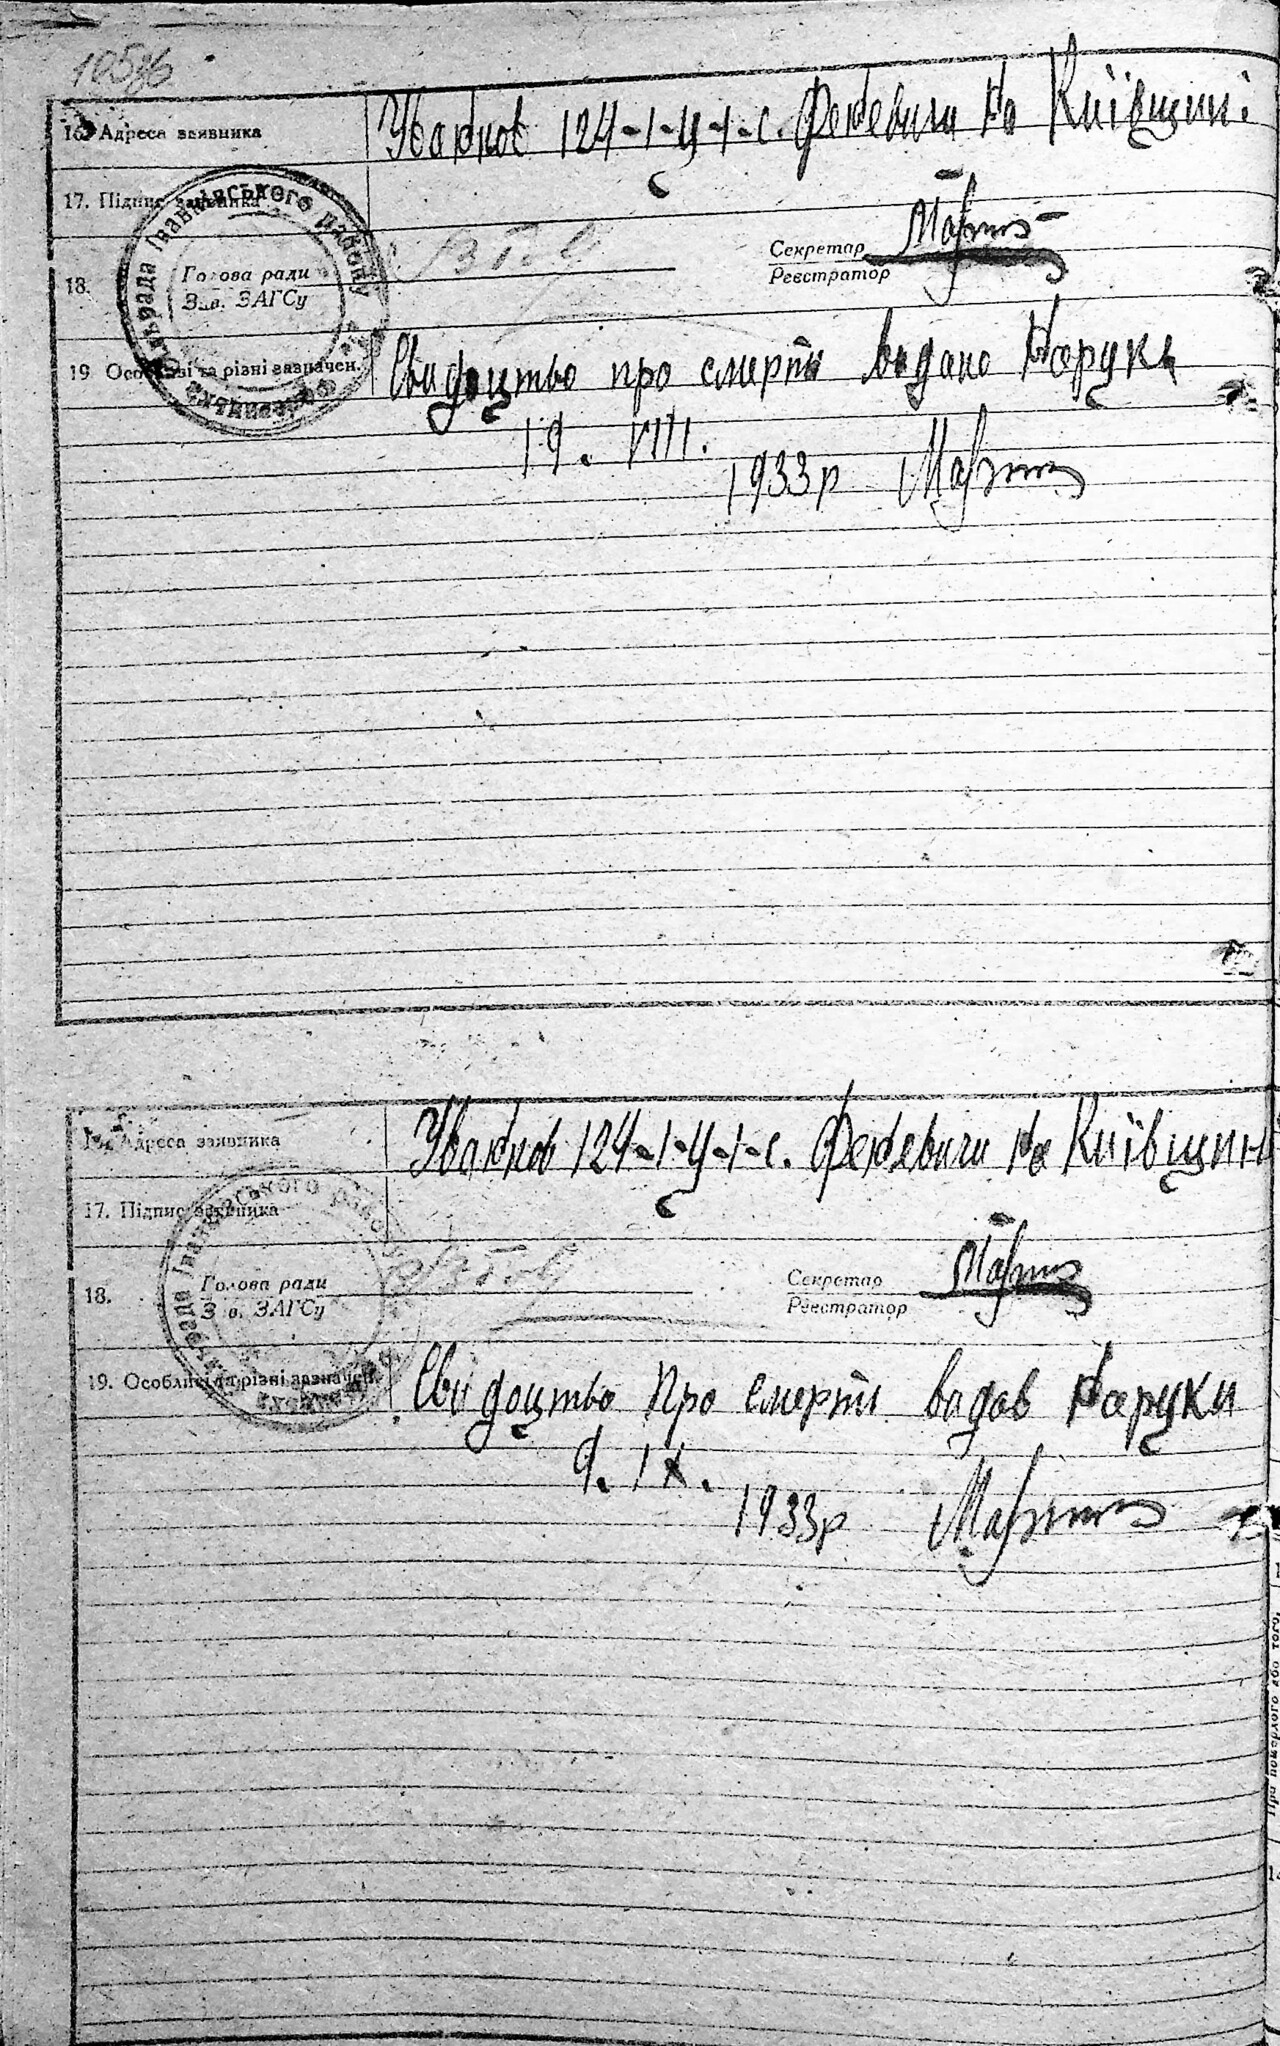 105зв
16. Адреса заявника Іванков 124-1-Ц-1-с. Феневичи на Київщині
17. Підпис заявника
18. Голова ради
Зав. ЗАГСу
Секретар
Реєстратор
19 Особливі та різні зазначен. Свидоцтво про смерть видано наруки
19. VIII.
1933р
16. Адреса заявника Іванков 124-1-Ц-1-с. Феневичи на Київщин
17. Підпис заявника
18. Голова ради
Зав. ЗАГСу
Секретар
Реєстратор
19. Особливі та різні зазначен. Свидоцтво про смерть видав наруки
9. IX.
1933р